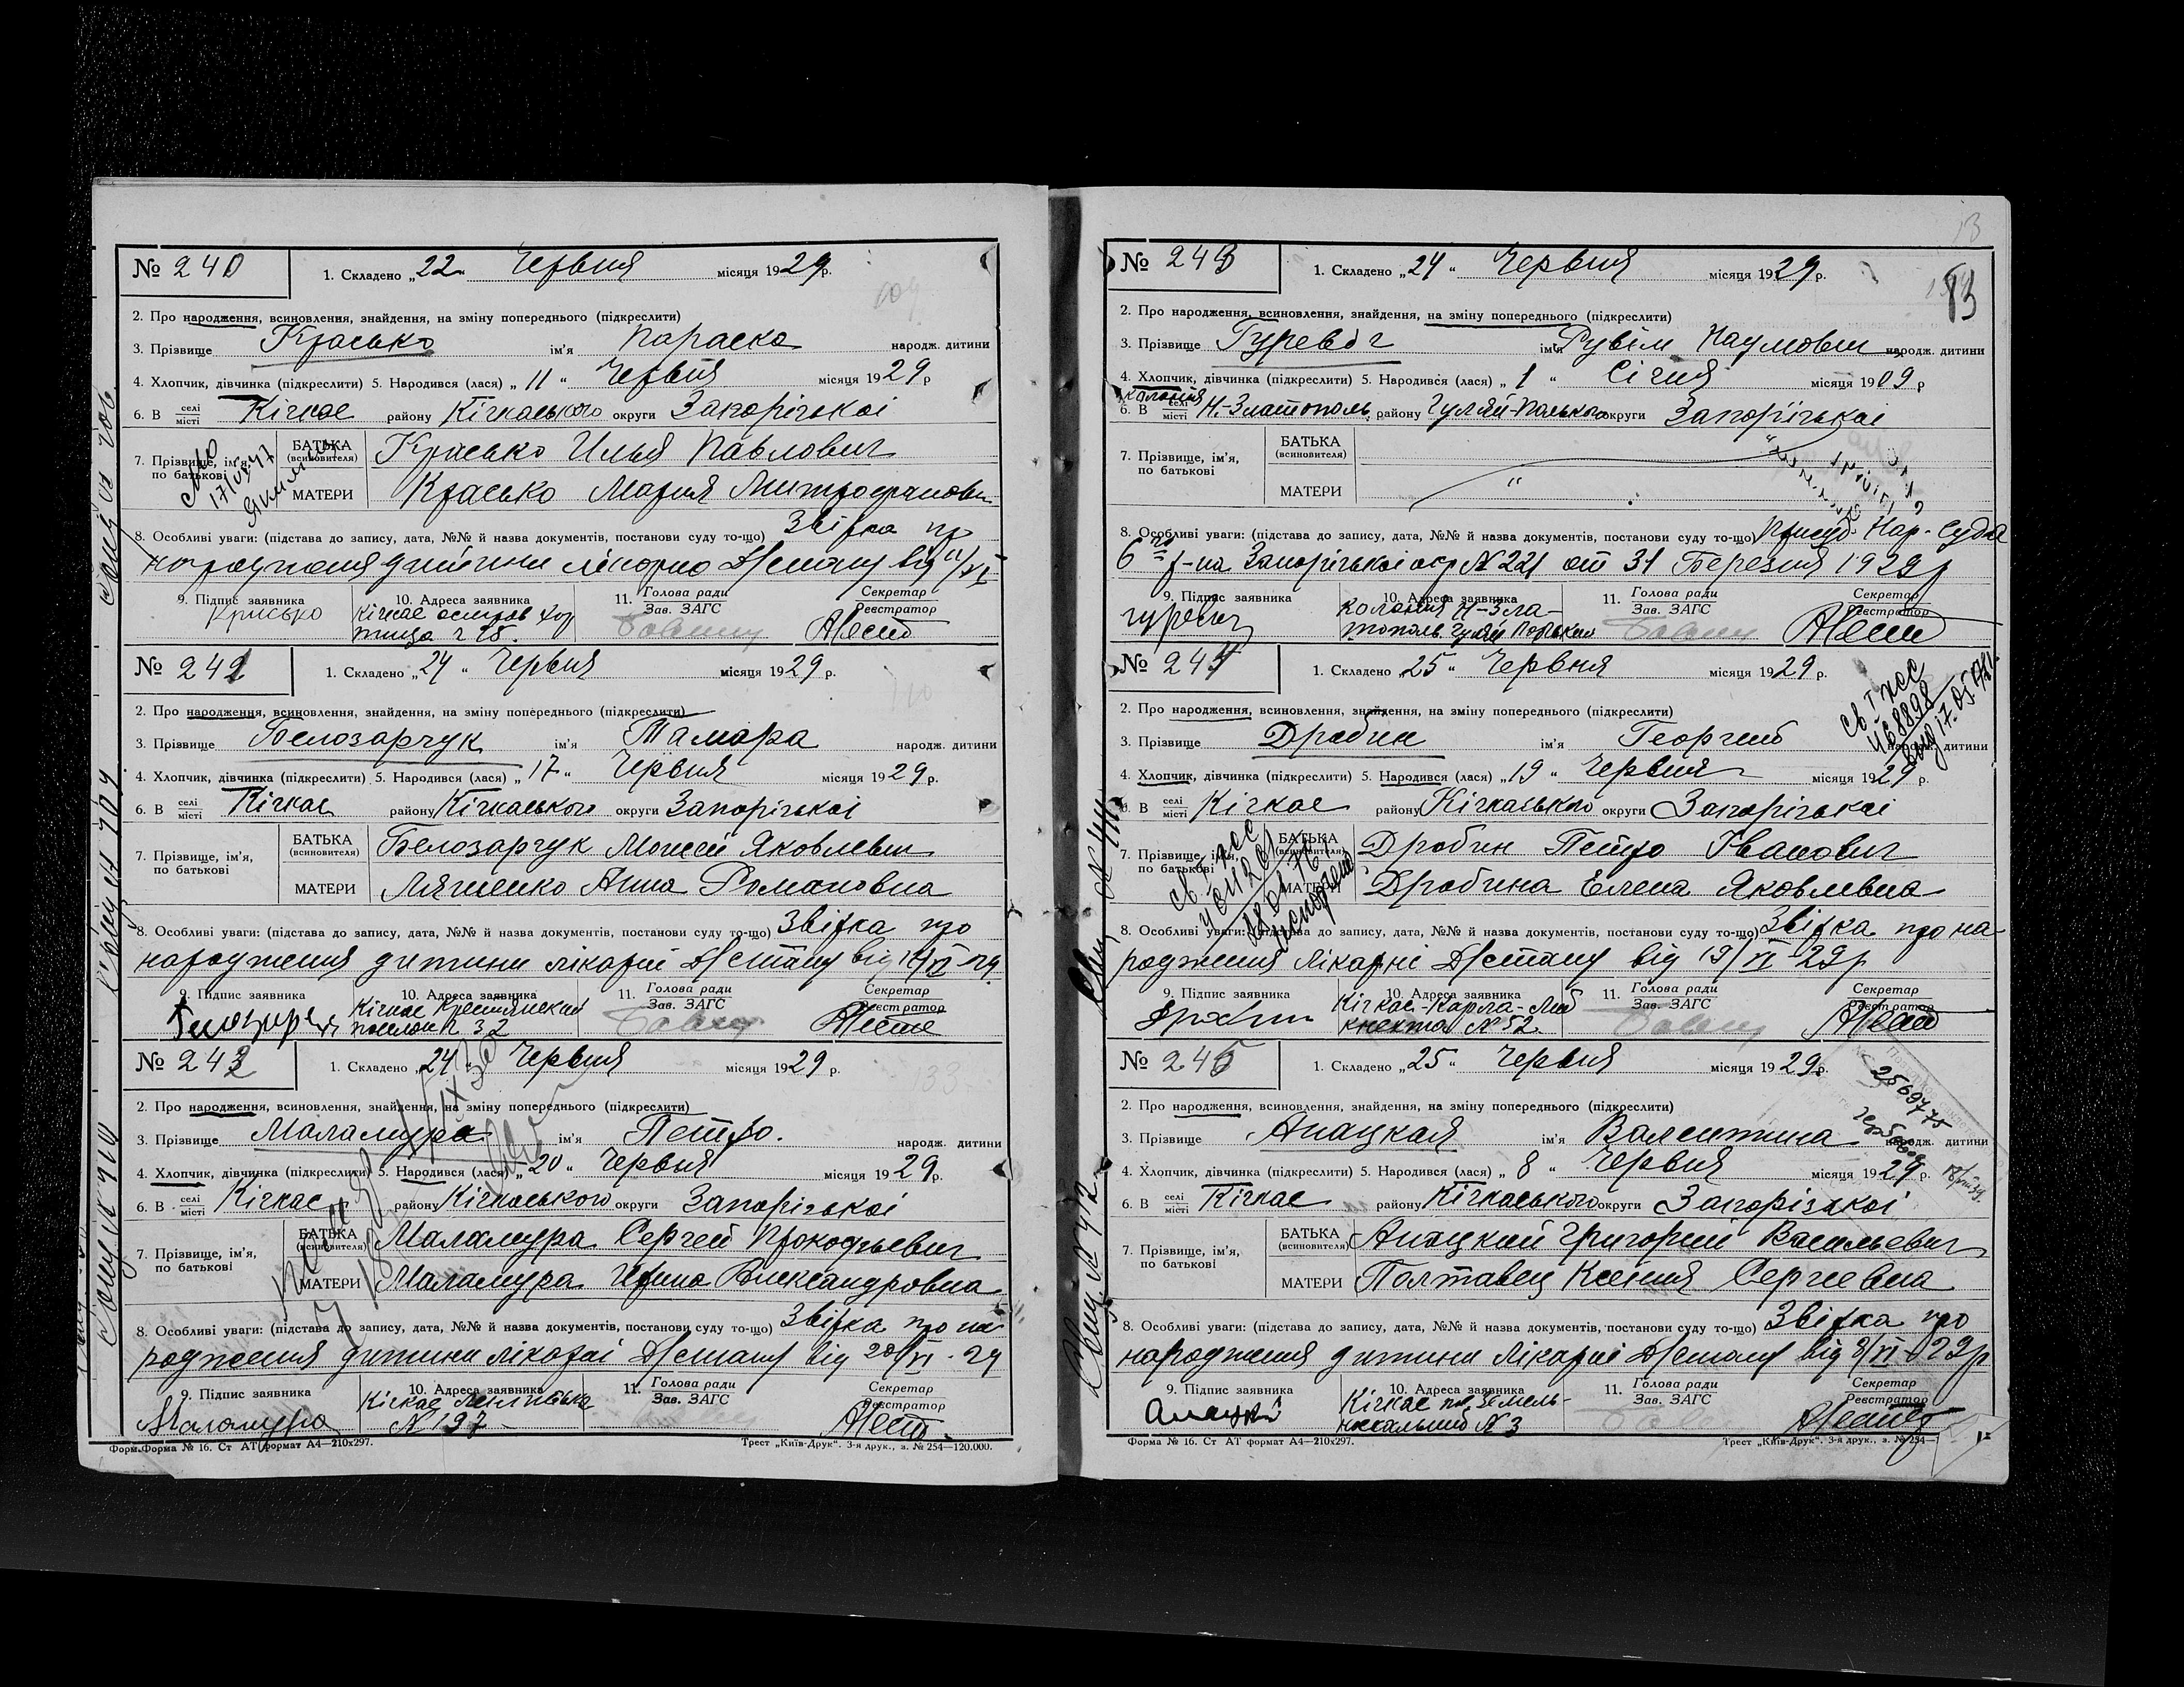 № 240
1. Складено „22“ Червня місяця 1929 р.
2. Про народження, всиновлення, знайдення, на зміну попереднього (підкреслити)
3. Прізвище Красько ім'я Параска народж. дитини
4. Хлопчик, дівчинка (підкреслити) 5. Народився (лася) „11“ Червня місяця 1929 р
6. В селі місті Кічкас району Кічкаського округи Запорізькоі
7. Прізвище, ім'я, по батькові БАТЬКА (всиновителя) Красько Илья Павлович
МАТЕРИ Красько Мария Митрофанови
8. Особливі уваги: (підстава до запису, дата, №№ й назва документів, постанови суду то-що) Звістка про
народження дитини
9. Підпис заявника 10. Адреса заявника 11. Голова ради Зав. ЗАГС Секретар Реєстратор
Красько Кічкас остров Хор
тица
№ 241
1. Складено „24“ Червня місяця 1929 р.
2. Про народження, всиновлення, знайдення, на зміну попереднього (підкреслити)
3. Прізвище Белозарчук ім'я Тамара народж. дитини
4. Хлопчик, дівчинка (підкреслити) 5. Народився (лася) „17“ Червня місяця 1929 р.
6. В селі місті Кічкас району Кічкаського округи Запорізькоі
7. Прізвище, ім'я, по батькові БАТЬКА (всиновителя) Белозарчук Мойсей Яковлевич
МАТЕРИ Ляшенко Анна Романовна
8. Особливі уваги: (підстава до запису, дата, №№ й назва документів, постанови суду то-що) Звістка про
народження дитини лікарні
9. Підпис заявника 10. Адреса заявника 11. Голова ради Зав. ЗАГС Секретар Реєстратор
Кічкас Крестянский
поселок 32
№ 242
1. Складено „24“ Червня місяця 1929 р.
2. Про народження, всиновлення, знайдення, на зміну попереднього (підкреслити)
3. Прізвище Маламура ім'я Петро. народж. дитини
4. Хлопчик, дівчинка (підкреслити) 5. Народився (лася) „20“ Червня місяця 1929 р.
6. В селі місті Кічкас району Кічкаського округи Запорізькоі
7. Прізвище, ім'я, по батькові БАТЬКА (всиновителя) Маламура Сергей Прокофьевич
МАТЕРИ Маламура Ирина Александровна
8. Особливі уваги: (підстава до запису, дата, №№ й назва документів, постанови суду то-що) Звістка про на
родження дитини лікарні від 20/VI - 29
9. Підпис заявника 10. Адреса заявника 11. Голова ради Зав. ЗАГС Секретар Реєстратор
Маламура Кічкас
N 197
Форма № 16. Ст АТ формат А4—210х297. Трест „Київ-Друк“. 3-я друк., з. № 254—120.000.
№ 243
1. Складено „24“ Червня місяця 1929 р.
83
2. Про народження, всиновлення, знайдення, на зміну попереднього (підкреслити)
3. Прізвище Гуревіч ім'я Рувім Наумович народж. дитини
4. Хлопчик, дівчинка (підкреслити) 5. Народився (лася) „1“ Січня місяця 1909 р
колонія
6. В селі місті Н-Златополь району Гуляй-Польского округи Запорізькоі
7. Прізвище, ім'я, по батькові БАТЬКА (всиновителя)
МАТЕРИ
8. Особливі уваги: (підстава до запису, дата, №№ й назва документів, постанови суду то-що) Присуд Нар-Суда
6 го р-на Запорізькоі окр N 221 от 31 Березня 1929 р
9. Підпис заявника 10. Адреса заявника 11. Голова ради Зав. ЗАГС Секретар Реєстратор
гуревич колонія Н-Зла-
тополь
№ 244
1. Складено „25“ Червня місяця 1929 р.
2. Про народження, всиновлення, знайдення, на зміну попереднього (підкреслити)
3. Прізвище Дробин ім'я Георгий народж. дитини
4. Хлопчик, дівчинка (підкреслити) 5. Народився (лася) „19“ Червня місяця 1929 р.
6. В селі місті Кічкас району Кічкаського округи Запорізькоі
7. Прізвище, ім'я, по батькові БАТЬКА (всиновителя) Дробин Петро Іванович
МАТЕРИ Дробина Елена Яковлевна
8. Особливі уваги: (підстава до запису, дата, №№ й назва документів, постанови суду то-що) Звістка про на
родження лікарні від 19/VI 29 р
9. Підпис заявника 10. Адреса заявника 11. Голова ради Зав. ЗАГС Секретар Реєстратор
Кічкас-Карла-Либ
кнехта N 52.
№ 245
1. Складено „25“ Червня місяця 1929 р.
2569775
2. Про народження, всиновлення, знайдення, на зміну попереднього (підкреслити)
3. Прізвище Анацкая ім'я Валентина народж. дитини
4. Хлопчик, дівчинка (підкреслити) 5. Народився (лася) „8“ Червня місяця 1929 р.
6. В селі місті Кічкас району Кічкаського округи Запорізькоі
7. Прізвище, ім'я, по батькові БАТЬКА (всиновителя) Анацкий Григорий Васильевич
МАТЕРИ Полтавец Ксения Сергеевна
8. Особливі уваги: (підстава до запису, дата, №№ й назва документів, постанови суду то-що) Звістка про
народження дитини лікарні від 8/VI - 29 р
9. Підпис заявника 10. Адреса заявника 11. Голова ради Зав. ЗАГС Секретар Реєстратор
Кічкас N 3
Форма № 16. Ст АТ формат А4—210х297. Трест „Київ-Друк“. 3-я друк., з. № 254—